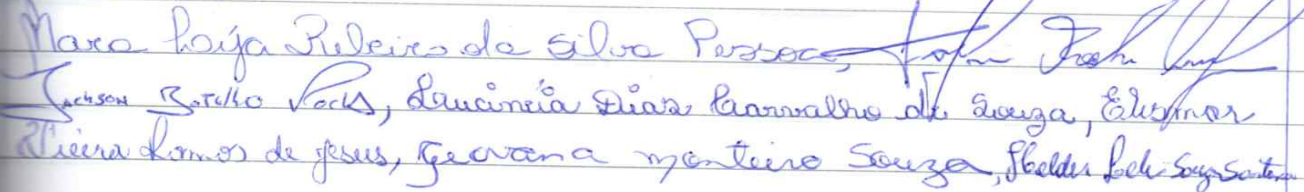 Mara Loija Ribeiro da Silva Pessoa,
Jackson Botelho, Laucinéia Dias Carvalho de Souza, Elismar
Vieira Ramos de Jesus, Geovana Monteiro Souza, Helder Souza Santana